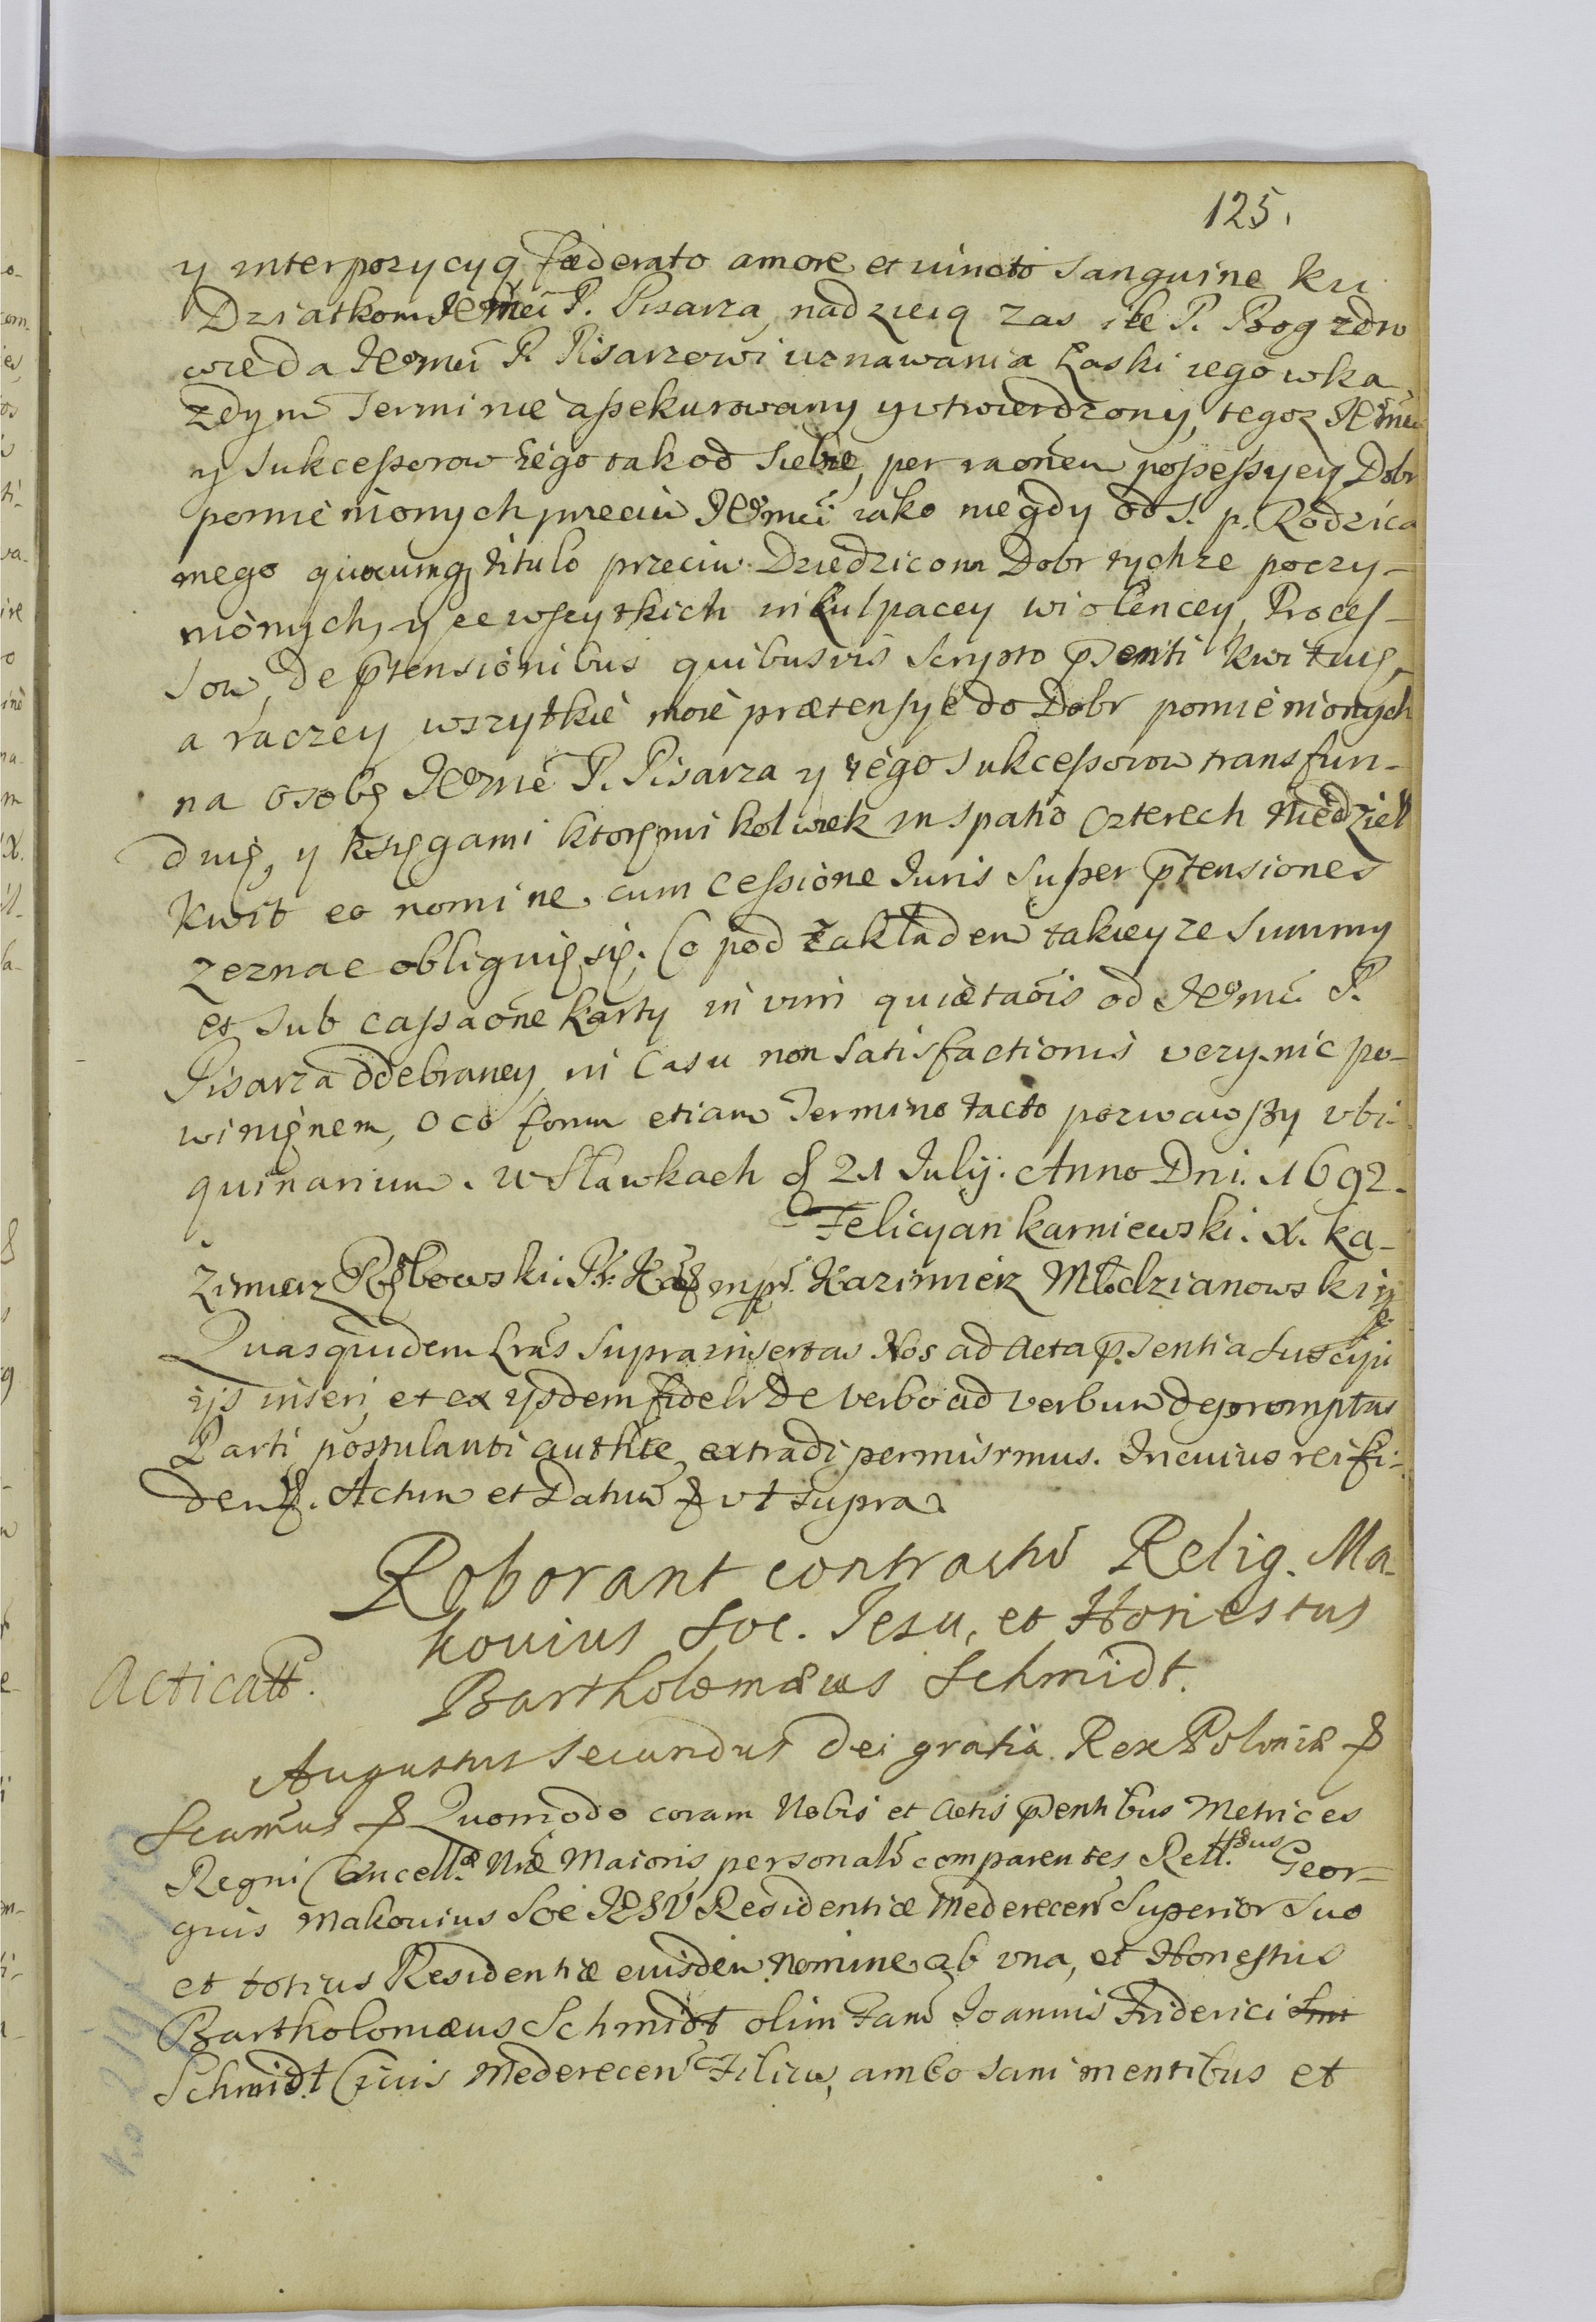 125.
y interpozycyą fæderato amore et vincto sanguine ku
Dziatkom Jeomći P. Pisarza, nadzieią zas ile P. Bog zdro
wie da Jeomći P. Pisarzowi uznawania Łaski iego wka
zdym Terminie assekurowany y utwierdzony, tegoz Jeomći
y Sukcessorow iego tak od siebie, per raonem possessyey Dobr
pomienionych przeciw Jeomći iako niegdy od S. p. Rodzica
mego quocunq titulo przeciw Dziedzicom Dobr tychze poczy-
nionych, y ze wszytkich inkulpacey wiolencey, Proces-
sow, de ptensionibus quibusvis scripto psenti kwituię,
a raczey wszytkie moie prætensye do Dobr pomienionych
na osobę Jeomć P. Pisarza y iego sukcessorow transfun-
duię, y Księgami ktoremi kolwiek in spatio czterech Niedziel
Kwit eo nomine, cum cessione Juris super ptensiones
zeznac obliguię się. Co pod zakładem takieyze Summy
et sub cassaone Karty in vim quietaois od Jeomći P.
Pisarza odebraney, in Casu non satisfactionis uczynic po-
winienem, o co forum etiam Termino tacto pozwawszy ubi-
quinarium. w Sławkach d 21 Julij. Anno Dni. 1692.
Felicyan Karniewski. X. Ka-
zimierz Rębowski. Pr. mpr. Kazimierz Młodzianowski
Quasquidem Lras supra insertas Nos ad Acta psentia suscipi
ijs inseri, et ex ijsdem fideli de verbo ad verbum depromptas
Parti postulanti authce extradi permisimus. In cuius rei fi-
dem &. Actum et Datum & ut supra
Roborant contractu Relig. Ma-
kovius Soc. Jesu, et Honestus
Bartholomæus Schmidt.
Acticatt.
Augustus Secundus Dei gratia Rex Poloniæ &
Scamus & Quomodo coram Nobis et Actis psentibus Metrices
Regni Cancell. Nræ Maioris personalr comparentes Rell.sus Geor-
gius Makovius Soc JESU Residentiæ Mederecen Superior suo
et totius Residentiæ eiusdem nomine ab una, et Honestus
Bartholomæus Schmidt olim Fam Joannis Friderici
Schmidt Civis Mederecen Filius, ambo sani mentibus et